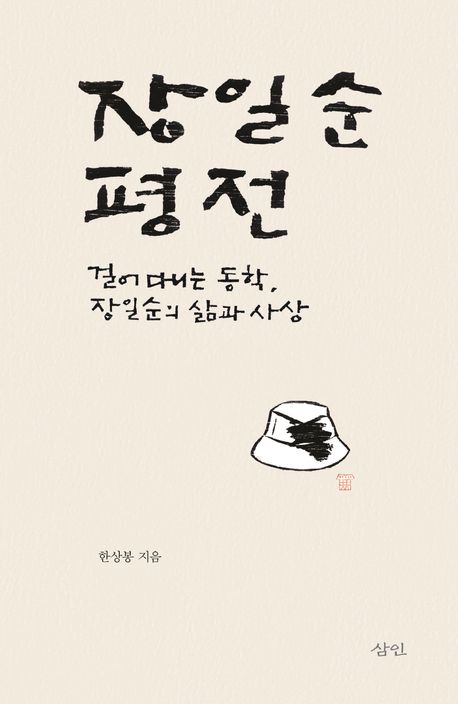 장일순
평전
걸어 다니는 동학,
장일순의 삶과 사상
한상봉 지음
삼인